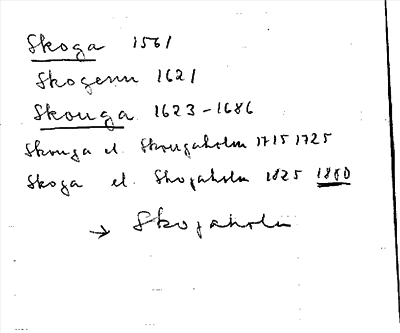 Skoga 1561
Skogenn 1621
Skouga 1623-1686
Skouga el. Skougaholm 1715 1725
Skoga el. Skogaholm 1825 1880
→ Skogaholm